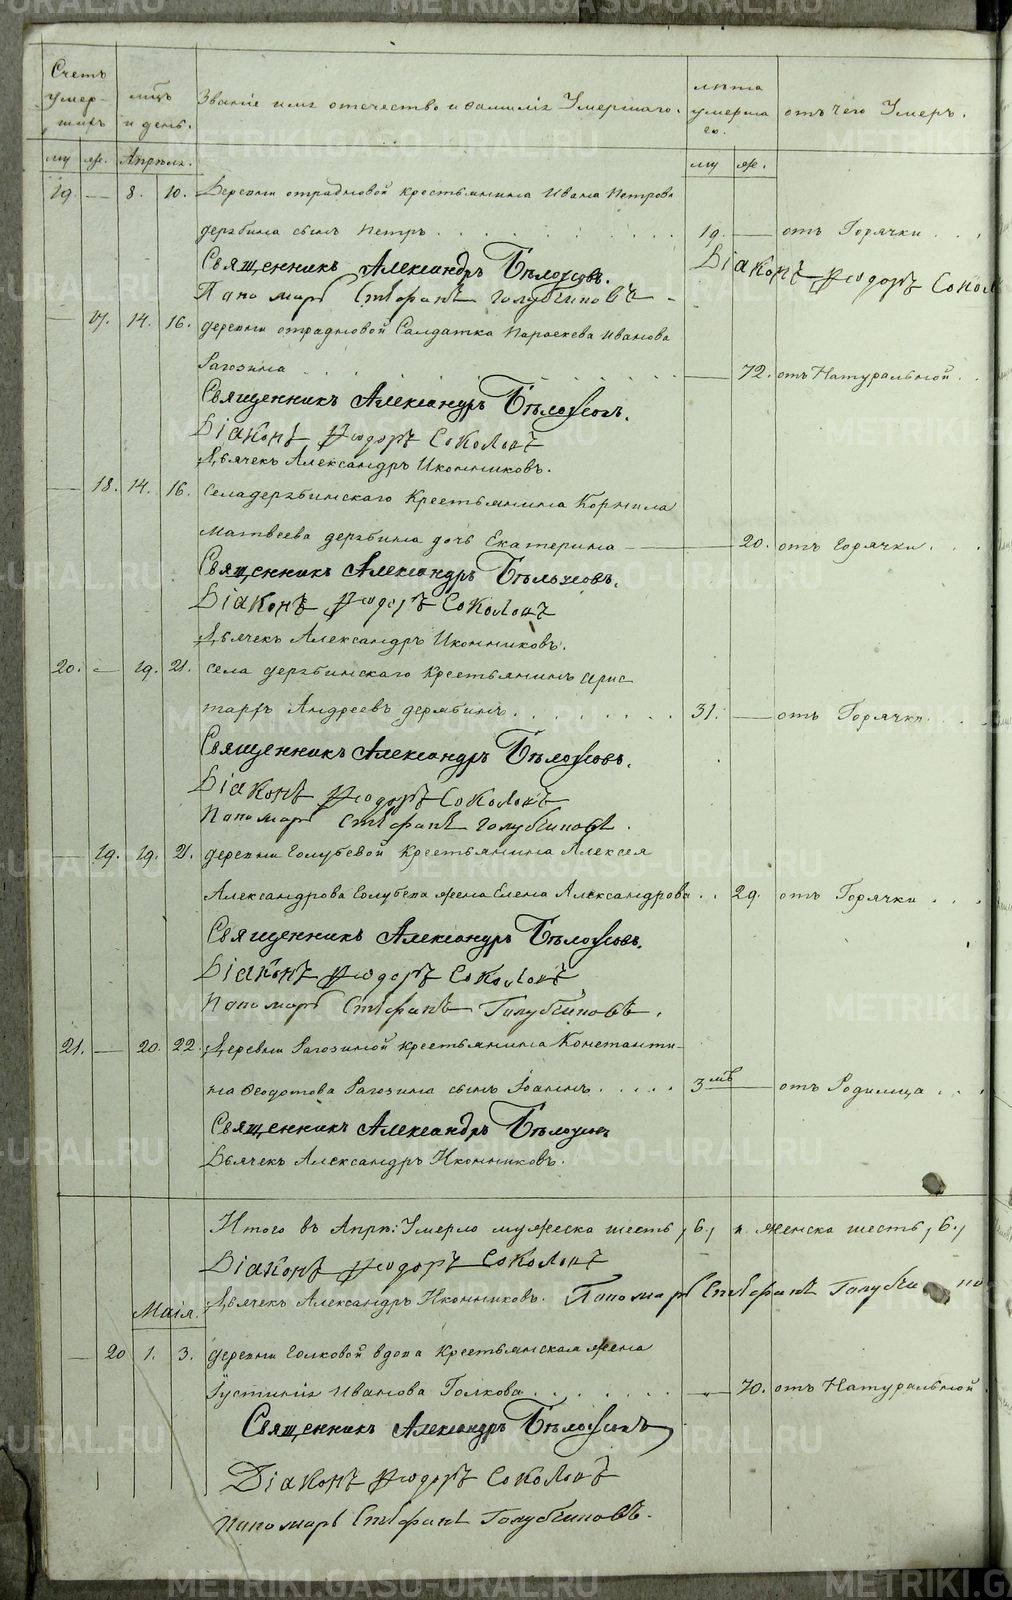 Счетъ умер-шихъ
мсцъ и день.
Званіе имя отечество и фамилія Умершаго.
лѣта умершаго.
отъ чего Умеръ.
му же. Апрѣля. му же.
19. — 8. 10. Деревни отрадновой крестьянина Ивана Петрова
дерябина сынъ Петръ. 19. — отъ Горячки
Священникъ Александръ Бѣлоусовъ. Діаконъ Ѳеодоръ Сокол
Пономарь Стефанъ Голубчиковъ
— 17. 14. 16. деревни отрадновой Салдатка Параскева Иванова
Рагозина — 72. отъ Натуральной
Священникъ Александръ Бѣлоусовъ.
Діаконъ Ѳеодоръ Соколовъ
Дьячекъ Александръ Иконниковъ.
— 18. 14. 16. Села дерябинскаго Крестьянина Корнила
Матвеева дерябина дочь Екатерина — 20. отъ горячки.
Священникъ Александръ Бѣлоусовъ.
Діаконъ Ѳеодоръ Соколовъ
Дьячекъ Александръ Иконниковъ.
20. — 19. 21. Села дерябинскаго Крестьянинъ Арис
тархъ Андреевъ дерябинъ. 31. — отъ Горячки.
Священникъ Александръ Бѣлоусовъ.
Діаконъ Ѳеодоръ Соколовъ
Пономарь Стефанъ Голубчиковъ.
— 19. 19. 21. деревни Голубевой Крестьянина Алексея
Александрова Голубева жена Елена Александрова 29. отъ Горячки
Священникъ Александръ Бѣлоусовъ.
Діаконъ Ѳеодоръ Соколовъ
Пономарь Стефанъ Голубчиковъ.
21. — 20. 22. Деревни Рагозиной крестьянина Константи-
на Ѳеодотова Рагозина сынъ Іоаннъ. 3 мѣ — отъ Родимца
Священникъ Александръ Бѣлоусовъ
Дьячекъ Александръ Иконниковъ.
Итого въ Апрѣ: Умерло мужеска шесть, 6, и женска шесть, 6,
Діаконъ Ѳеодоръ Соколовъ
Дьячекъ Александръ Иконниковъ. Пономарь Стефанъ Голубчиковъ
Маія.
— 20 1. 3. деревни Голковой вдова Крестьянская жена
Іустинія Иванова Голкова. — 70. отъ Натуральной
Священникъ Александръ Бѣлоусовъ
Діаконъ Ѳеодоръ Соколовъ
Пономарь Стефанъ Голубчиковъ.